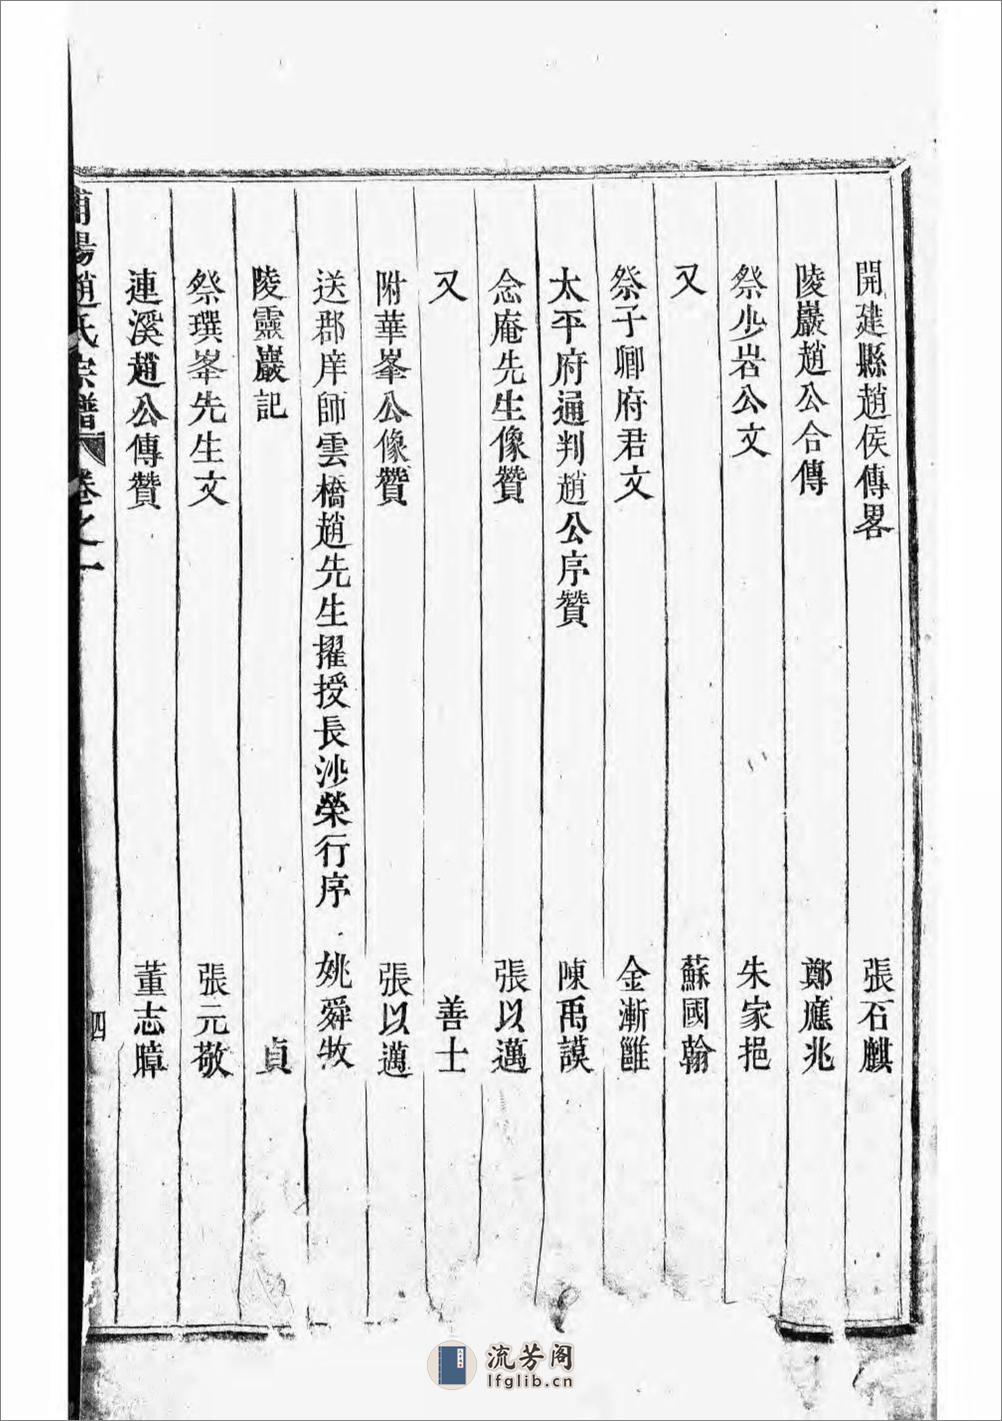 開建縣趙侯傳畧 張石麒
陵巖趙公合傳 鄭應兆
祭少岩公文 朱家挹
又 蘇國翰
祭子卿府君文 金漸雝
太平府通判趙公序贊 陳禹謨
念庵先生像贊 張以邁
又 善士
附華峯公像贊 張以邁
送郡庠師雲橋趙先生擢授長沙榮行序 姚舜牧
陵靈巖記 貞
祭璵峯先生文 張元敬
連溪趙公傳贊 董志暲
陽趙氏宗譜 卷之一 四
流芳阁
lfglib.cn